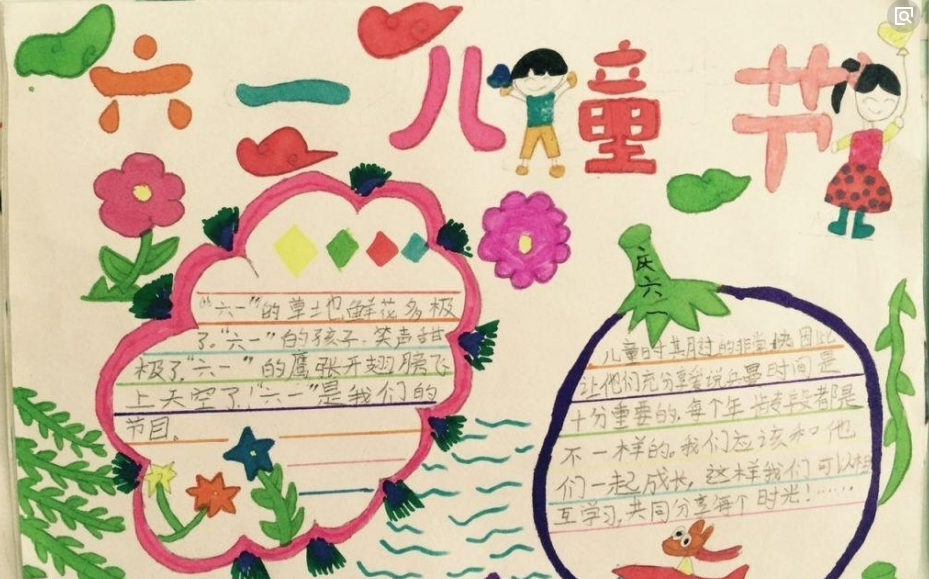 六一儿童节
"六一"的草地鲜花多极
了。"六一"的孩子，笑声甜
极了，"六一"的鹰张开翅膀飞
上天空了！"六一"是我们的
节目。
庆
六
一
儿童时其用过的非常快因此
让他们充分享受说 时间是
十分重要的，每个年龄段都是
不一样的。我们应该和他
们一起成长，这样我们可以相
互学习，共同分享每个时光！……